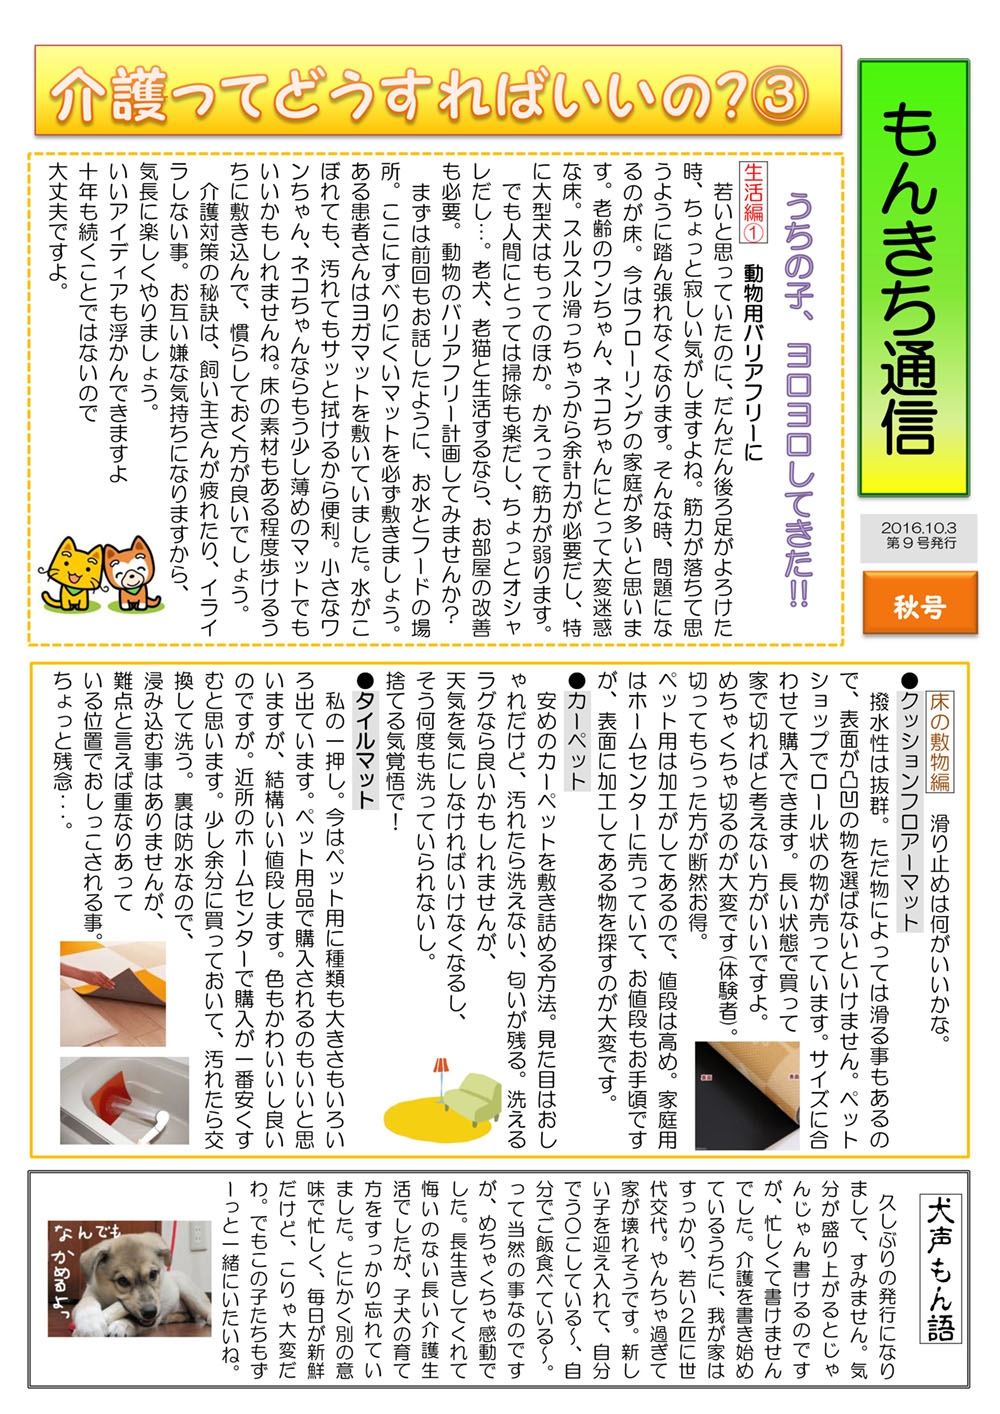 もんきち通信
2016.10.3
第9号発行
秋号
介護ってどうすればいいの?③
うちの子、ヨロヨロしてきた!!
生活編① 動物用バリアフリーに
若いと思っていたのに、だんだん後ろ足がよろけた
時、ちょっと寂しい気がしますよね。筋力が落ちて思
うように踏ん張れなくなります。そんな時、問題にな
るのが床。今はフローリングの家庭が多いと思いま
す。老齢のワンちゃん、ネコちゃんにとって大変迷惑
な床。スルスル滑っちゃうから余計力が必要だし、特
に大型犬はもってのほか。かえって筋力が弱ります。
でも人間にとっては掃除も楽だし、ちょっとオシャ
レだし…。老犬、老猫と生活するなら、お部屋の改善
も必要。動物のバリアフリー計画してみませんか?
まずは前回もお話したように、お水とフードの場
所。ここにすべりにくいマットを必ず敷きましょう。
ある患者さんはヨガマットを敷いていました。水がこ
ぼれても、汚れてもサッと拭けるから便利。小さなワ
ンちゃん、ネコちゃんならもう少し薄めのマットでも
いいかもしれませんね。床の素材もある程度歩けるう
ちに敷き込んで、慣らしておく方が良いでしょう。
介護対策の秘訣は、飼い主さんが疲れたり、イライ
ラしない事。お互い嫌な気持ちになりますから、
気長に楽しくやりましょう。
いいアイディアも浮かんできますよ
十年も続くことではないので
大丈夫ですよ。
床の敷物編 滑り止めは何がいいかな。
●クッションフロアーマット
撥水性は抜群。ただ物によっては滑る事もあるの
で、表面が凸凹の物を選ばないといけません。ペット
ショップでロール状の物が売っています。サイズに合
わせて購入できます。長い状態で買って
家で切ればと考えない方がいいですよ。
めちゃくちゃ切るのが大変です(体験者)。
切ってもらった方が断然お得。
ペット用は加工がしてあるので、値段は高め。家庭用
はホームセンターに売っていて、お値段もお手頃です
が、表面に加工してある物を探すのが大変です。
●カーペット
安めのカーペットを敷き詰める方法。見た目はおし
ゃれだけど、汚れたら洗えない、匂いが残る。洗える
ラグなら良いかもしれませんが、
天気を気にしなければいけなくなるし、
そう何度も洗っていられないし。
捨てる気覚悟で!
●タイルマット
私の一押し。今はペット用に種類も大きさもいろい
ろ出ています。ペット用品で購入されるのもいいと思
いますが、結構いい値段します。色もかわいいし良い
のですが。近所のホームセンターで購入が一番安くす
むと思います。少し余分に買っておいて、汚れたら交
換して洗う。裏は防水なので、
浸み込む事はありませんが、
難点と言えば重なりあって
いる位置でおしっこされる事。
ちょっと残念・・・。
犬声もん語
久しぶりの発行になり
まして、すみません。気
分が盛り上がるとじゃ
んじゃん書けるのです
が、忙しくて書けません
でした。介護を書き始め
ているうちに、我が家は
すっかり、若い2匹に世
代交代。やんちゃ過ぎて
家が壊れそうです。新し
い子を迎え入れて、自分
でう〇こしている~、自
分でご飯食べている~。
って当然の事なのです
が、めちゃくちゃ感動で
した。長生きしてくれて
悔いのない長い介護生
活でしたが、子犬の育て
方をすっかり忘れてい
ました。とにかく別の意
味で忙しく、毎日が新鮮
だけど、こりゃ大変だ
わ。でもこの子たちもず
ーっと一緒にいたいね。
なんでも
かめるよっ